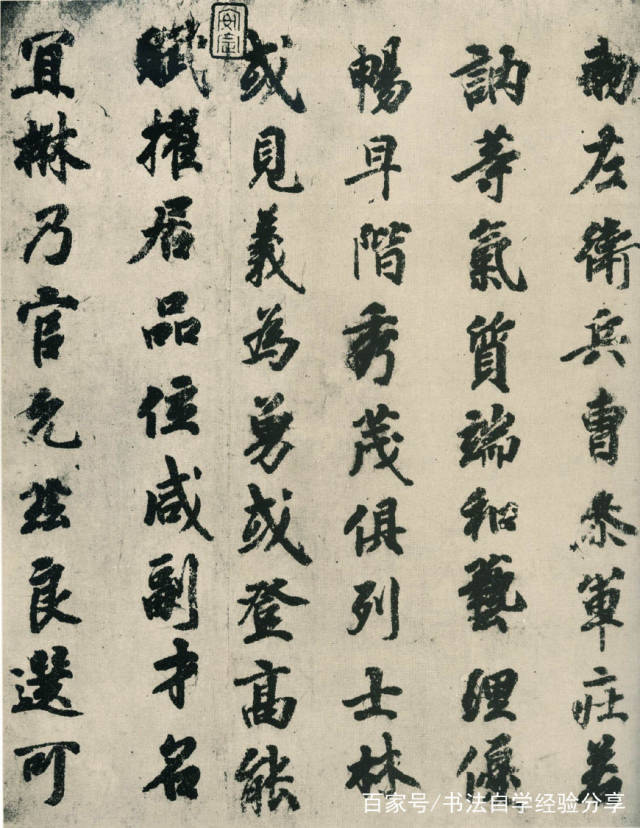 勑左衛兵曹叅軍庄若
訥等氣質端和藝理優
暢早階秀茂俱列士林
或見義為勇或登高能
賦擢居品位咸副才名
宜楙乃官允茲良選可
百家号/书法自学经验分享